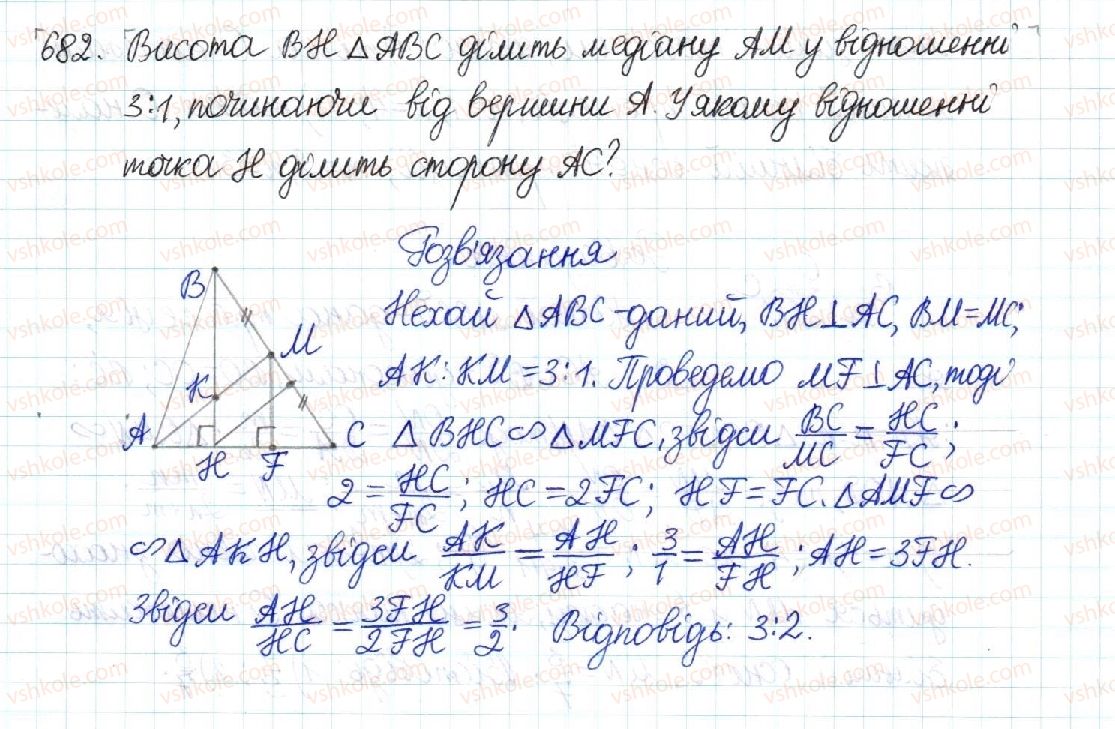 682. Висота BH △ABC ділить медіану AM у відношенні
3:1, починаючи від вершини A. У якому відношенні
точка H ділить сторону AC?
Розв'язання
B
M
K
A
H
F
C
Нехай △ABC - даний, BH⊥AC, BM=MC;
AK:KM=3:1. Проведемо MF⊥AC, тоді
△BHC∽△MFC, звідси BC/MC = HC/FC;
2 = HC/FC; HC=2FC; HF=FC. △AMF∽
∽△AKH, звідси AK/KM = AH/HF; 3/1 = AH/FH; AH=3FH.
Звідси AH/HC = 3FH/2FH = 3/2. Відповідь: 3:2.
vshkole.com